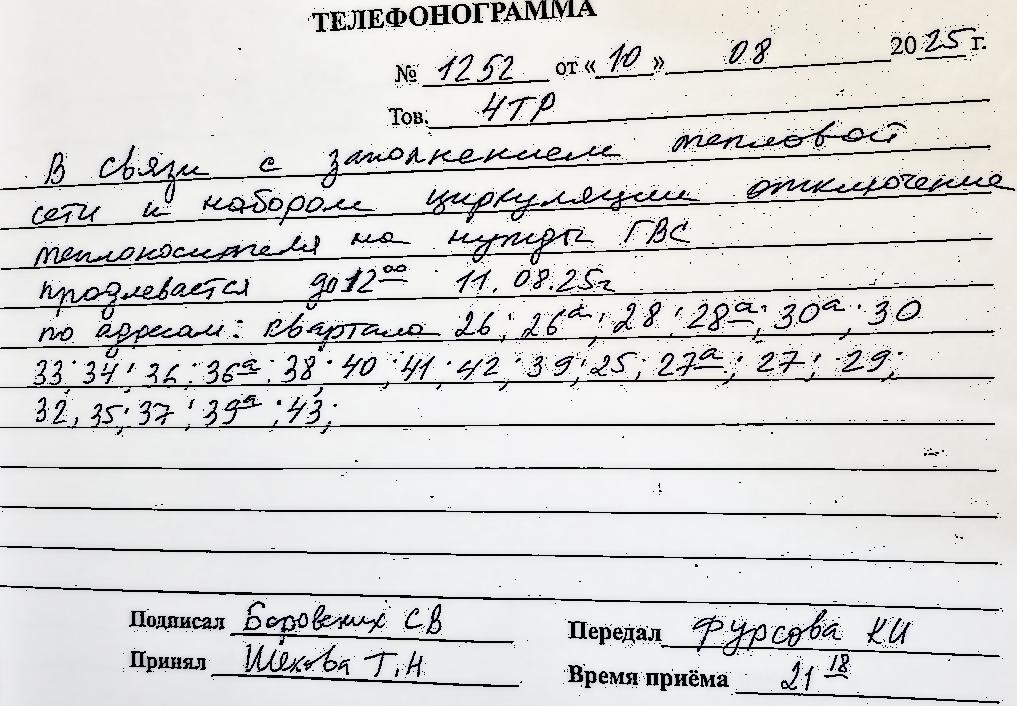 ТЕЛЕФОНОГРАММА
№ 1252 от «10» 08 2025 г.
Тов. ЧТР
В связи с заполнением тепловой
сети и набором циркуляции отключение
теплоносителя на нужды ГВС
продлевается до 12ºº 11.08.25г
по адресам: квартала 26; 26ª; 28; 28ª; 30ª; 30
33; 34; 36; 36ª; 38; 40; 41; 42; 39; 25; 27ª; 27; 29;
32, 35; 37; 39ª; 43;
Подписал Боровских СВ
Передал Фурсова КИ
Принял Шекова Т.Н
Время приёма 21 18